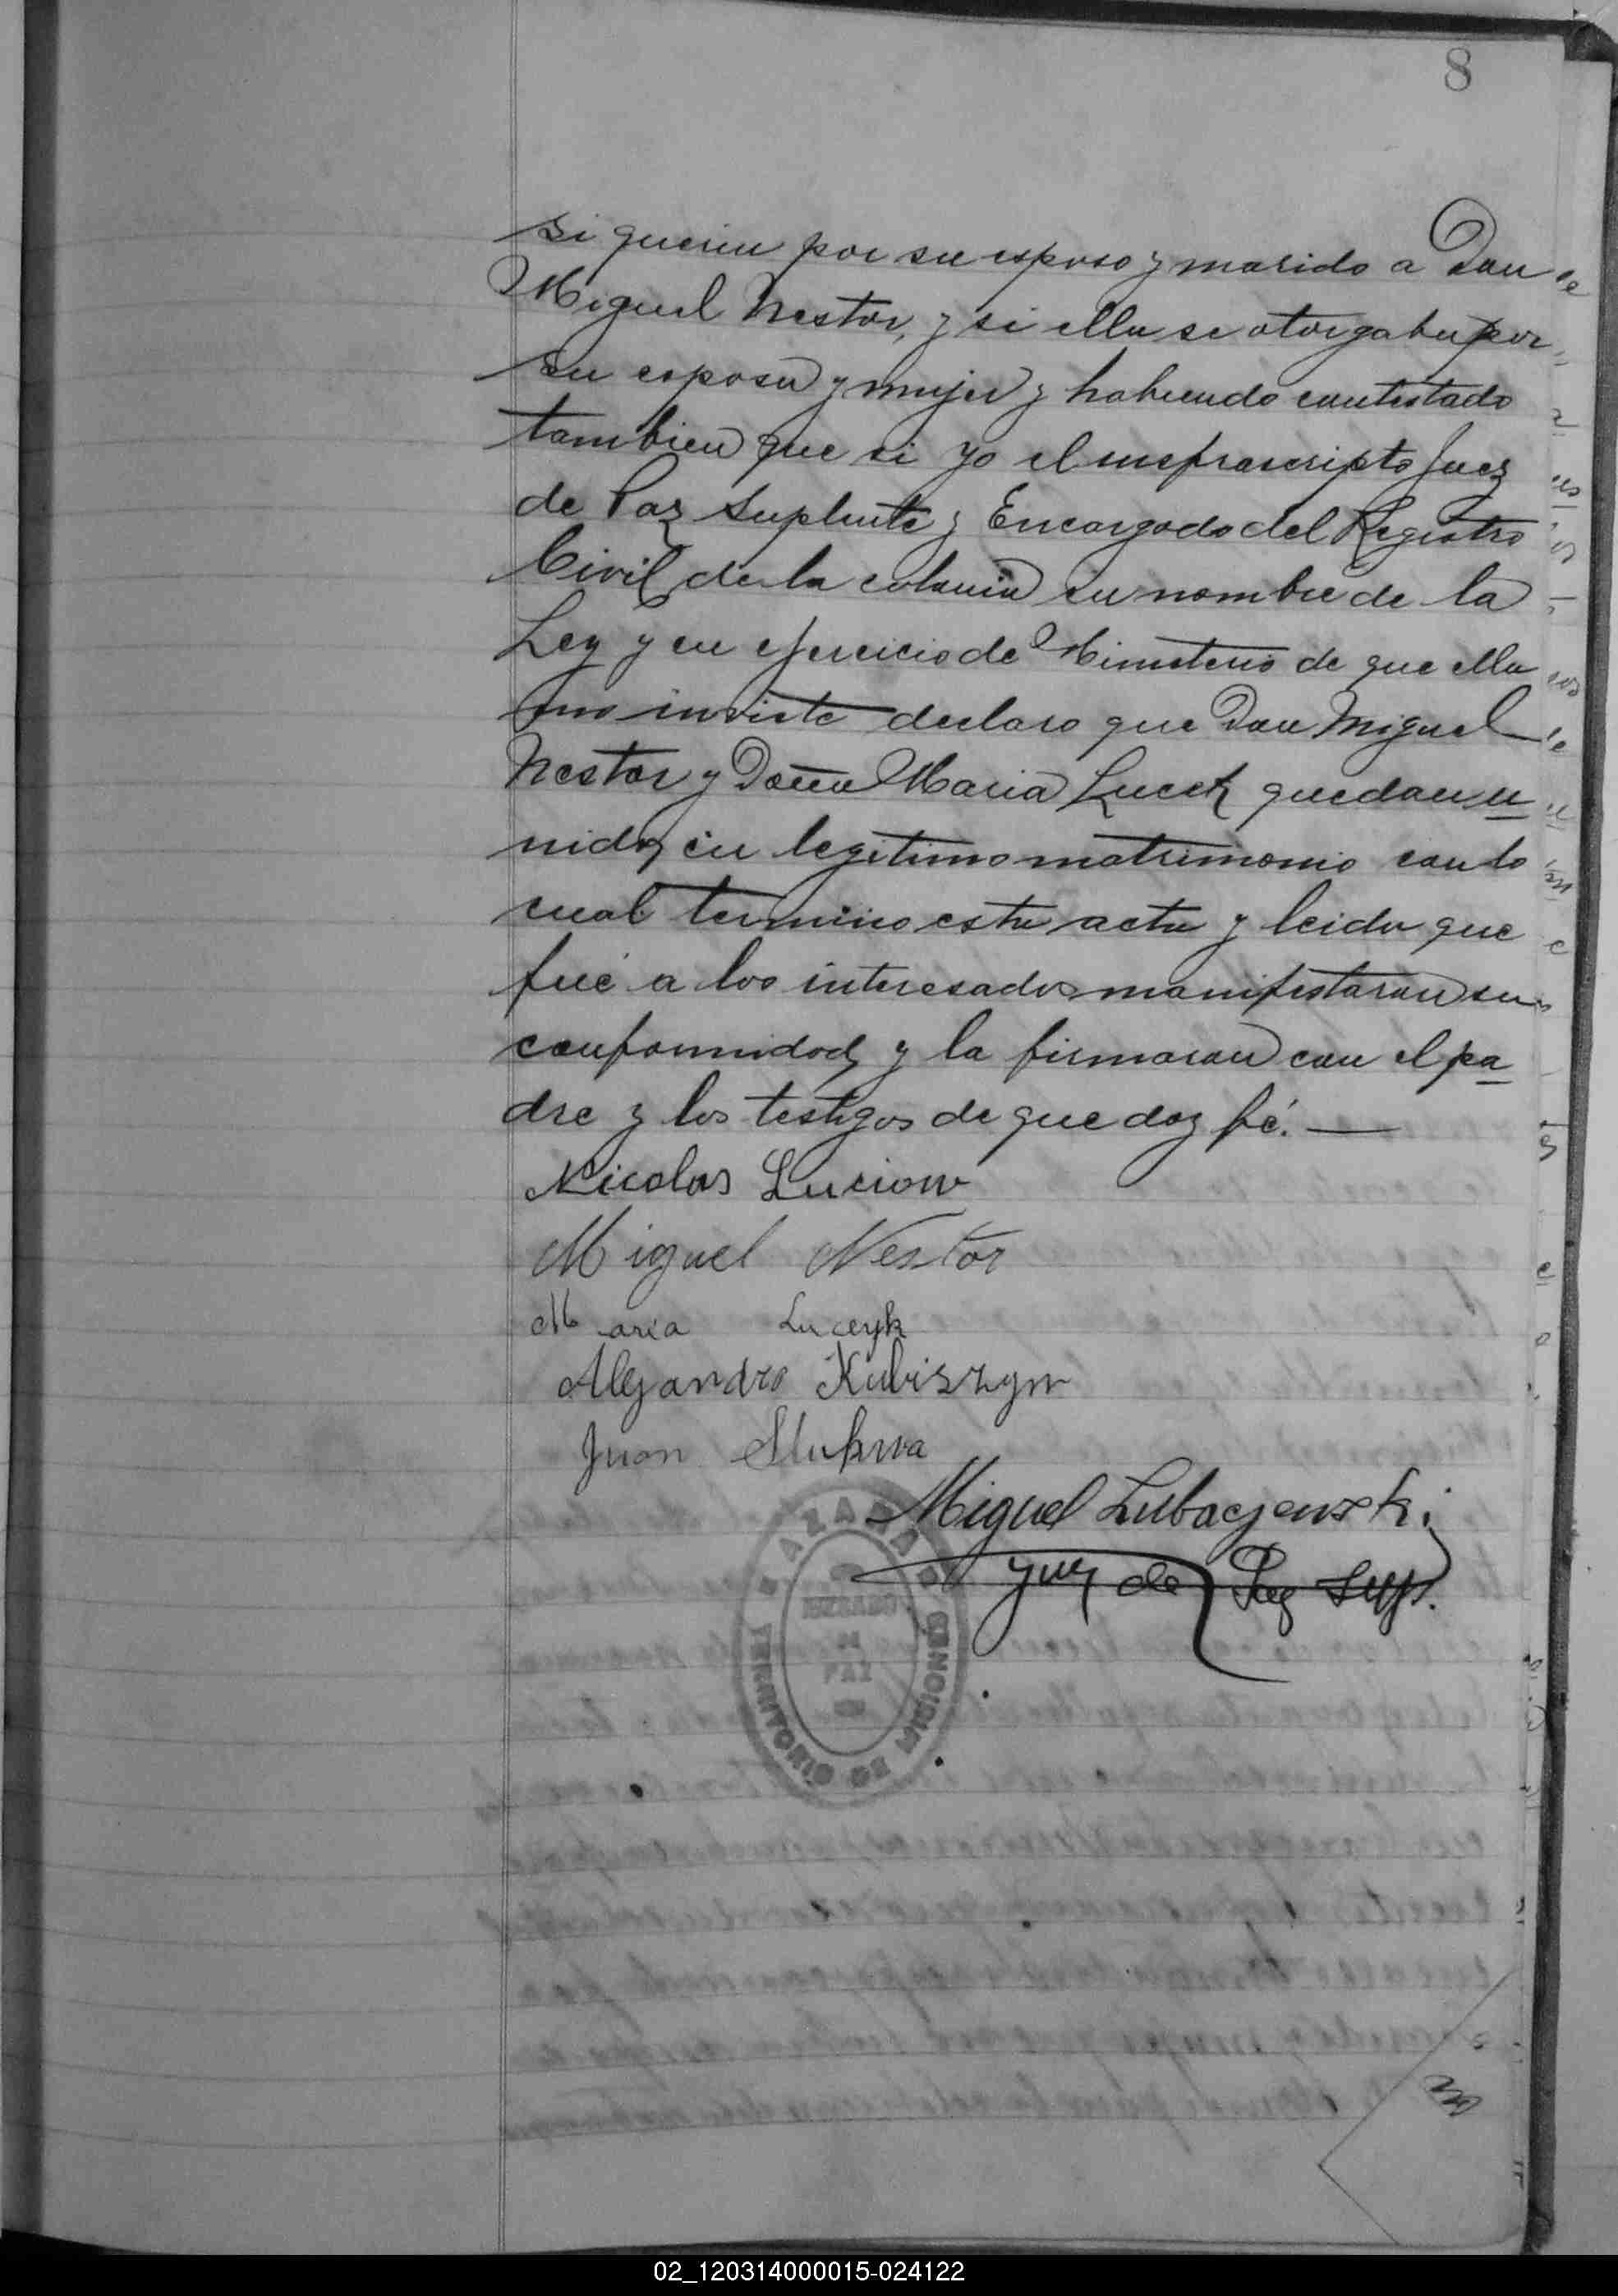 8
si queria por su esposo y marido a Don
Miguel Nestor, y si ella se otorgaba por
su esposa y mujer y habiendo contestado
tambien que si yo el infrascripto Juez
de Paz Suplente y Encargado del Registro
Civil de la colonia en nombre de la
Ley y en ejercicio de Ministerio de que ella
me inviste declaro que Don Miguel
Nestor y Doña Maria Lucek quedan u
nidos en legitimo matrimonio con lo
cual termino esta acta y leida que
fué a los interesados manifestaron su
conformidad y la firmaron con el pa
dre y los testigos de que doy fé. —
Nicolas Luciow
Miguel Nestor
Maria Luceyk
Alejandro Kubiszyn
Juan Slukwa
Miguel Lubaczewski
Juez de Paz Sup.
AZARA
JUZGADO
DE
PAZ
TERRITORIO DE MISIONES
02_120314000015-024122